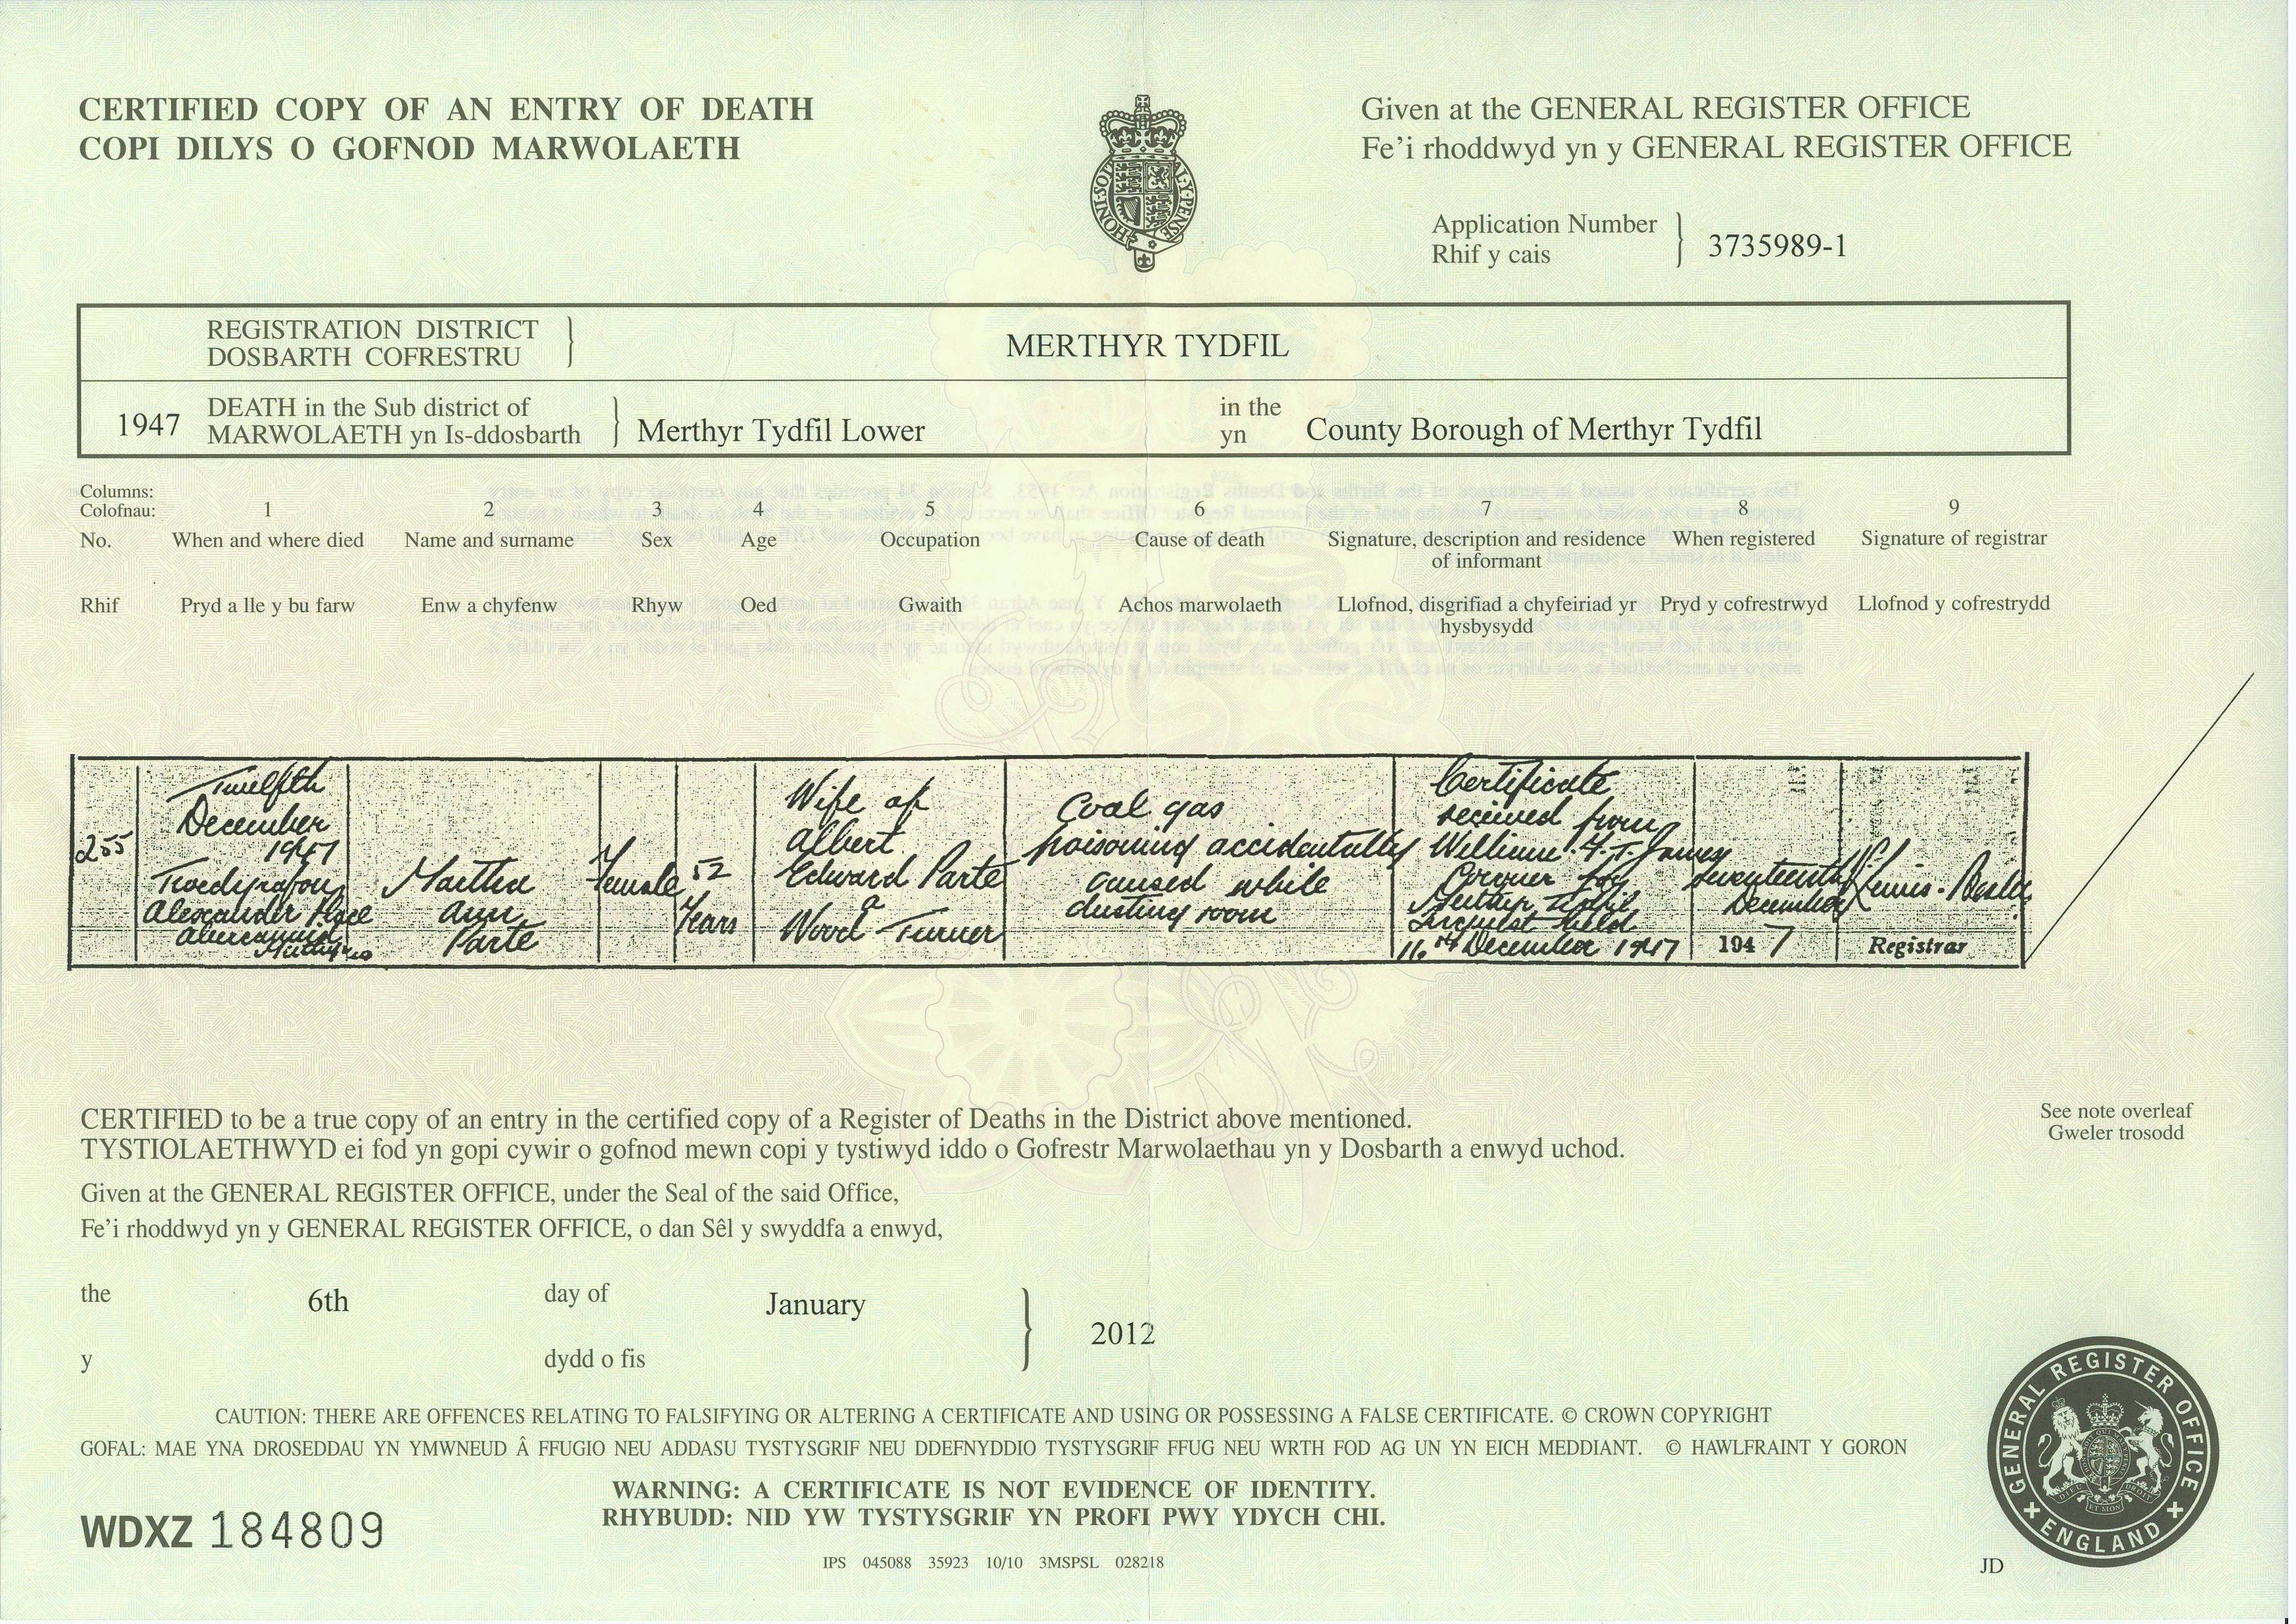 CERTIFIED COPY OF AN ENTRY OF DEATH
COPI DILYS O GOFNOD MARWOLAETH
HONI·SOIT Y·PENSE
Given at the GENERAL REGISTER OFFICE
Fe'i rhoddwyd yn y GENERAL REGISTER OFFICE
Application Number
Rhif y cais
3735989-1
REGISTRATION DISTRICT
DOSBARTH COFRESTRU
MERTHYR TYDFIL
1947
DEATH in the Sub district of
MARWOLAETH yn Is-ddosbarth
Merthyr Tydfil Lower
in the
yn
County Borough of Merthyr Tydfil
Columns:
Colofnau:
1 2 3 4 5 6 7 8 9
No. When and where died Name and surname Sex Age Occupation Cause of death Signature, description and residence When registered Signature of registrar
of informant
Rhif Pryd a lle y bu farw Enw a chyfenw Rhyw Oed Gwaith Achos marwolaeth Llofnod, disgrifiad a chyfeiriad yr Pryd y cofrestrwyd Llofnod y cofrestrydd
hysbysydd
255
Twelfth
December
1947
Alexander Place
Abercanaid
Martha
Ann
Parte
Female
52
Years
Wife of
Albert
Edward Parte
a
Wood Turner
Coal gas
poisoning accidentally
caused while
dusting room
Certificate
received from
William
Coroner for
Merthyr Tydfil
Inquest held
16th December 1947
Seventeenth
December
1947
Lewis
Registrar
CERTIFIED to be a true copy of an entry in the certified copy of a Register of Deaths in the District above mentioned.
TYSTIOLAETHWYD ei fod yn gopi cywir o gofnod mewn copi y tystiwyd iddo o Gofrestr Marwolaethau yn y Dosbarth a enwyd uchod.
See note overleaf
Gweler trosodd
Given at the GENERAL REGISTER OFFICE, under the Seal of the said Office,
Fe'i rhoddwyd yn y GENERAL REGISTER OFFICE, o dan Sêl y swyddfa a enwyd,
the 6th day of January
2012
y dydd o fis
CAUTION: THERE ARE OFFENCES RELATING TO FALSIFYING OR ALTERING A CERTIFICATE AND USING OR POSSESSING A FALSE CERTIFICATE. © CROWN COPYRIGHT
GOFAL: MAE YNA DROSEDDAU YN YMWNEUD Â FFUGIO NEU ADDASU TYSTYSGRIF NEU DDEFNYDDIO TYSTYSGRIF FFUG NEU WRTH FOD AG UN YN EICH MEDDIANT. © HAWLFRAINT Y GORON
WARNING: A CERTIFICATE IS NOT EVIDENCE OF IDENTITY.
RHYBUDD: NID YW TYSTYSGRIF YN PROFI PWY YDYCH CHI.
WDXZ 184809
IPS 045088 35923 10/10 3MSPSL 028218
GENERAL REGISTER OFFICE
ENGLAND
JD